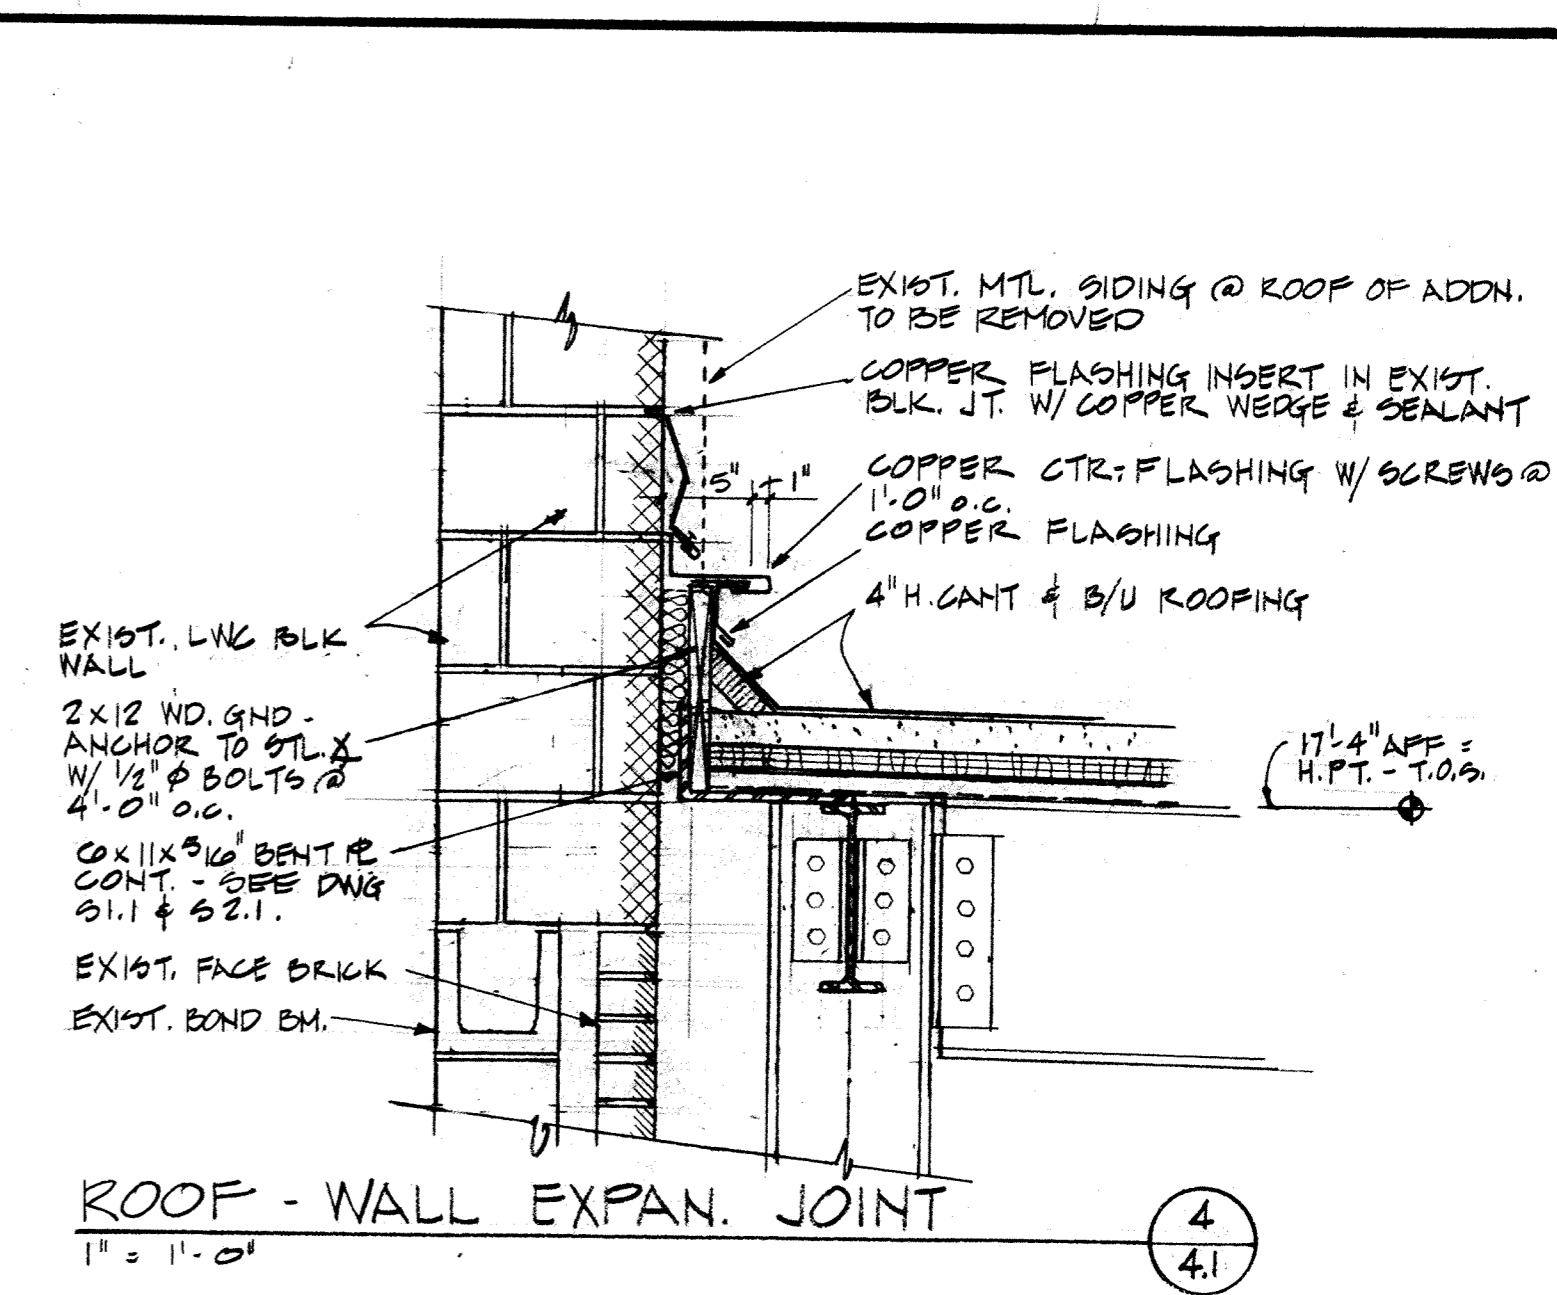 EXIST. MTL. SIDING @ ROOF OF ADDN.
TO BE REMOVED
COPPER FLASHING INSERT IN EXIST.
BLK. JT. W/ COPPER WEDGE & SEALANT
5" 1"
COPPER CTR-FLASHING W/ SCREWS @
1'-0" o.c.
COPPER FLASHING
4" H. CANT & B/U ROOFING
EXIST. LWC BLK
WALL
2x12 WD. GND -
ANCHOR TO STL.
W/ 1/2" Ø BOLTS @
4'-0" o.c.
6 x 11 x 5/16" BENT PL
CONT. - SEE DWG
S1.1 & S2.1.
EXIST. FACE BRICK
EXIST. BOND BM.
17'-4" AFF =
H.PT. - T.O.S.
ROOF - WALL EXPAN. JOINT
1" = 1'-0"
4
4.1